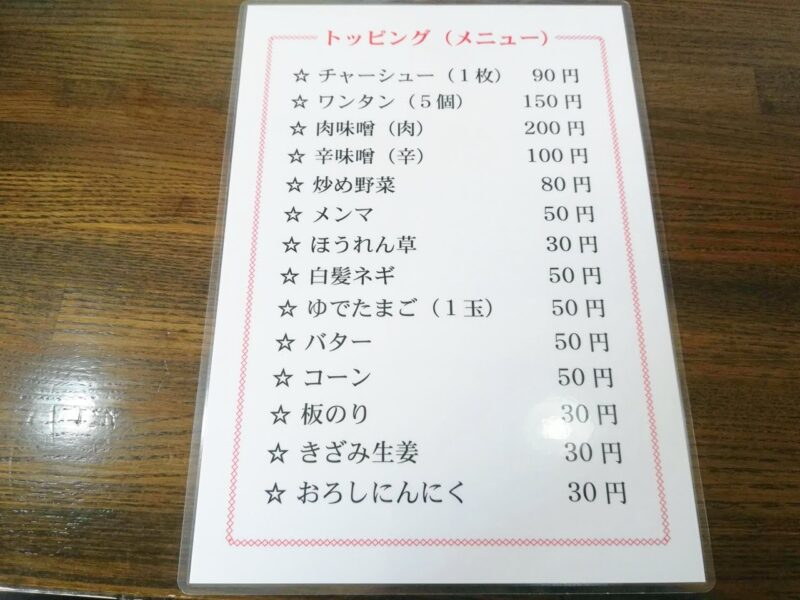 トッピング（メニュー）
☆ チャーシュー（１枚） 90 円
☆ ワンタン（５個） 150 円
☆ 肉味噌（肉） 200 円
☆ 辛味噌（辛） 100 円
☆ 炒め野菜 80 円
☆ メンマ 50 円
☆ ほうれん草 30 円
☆ 白髪ネギ 50 円
☆ ゆでたまご（１玉） 50 円
☆ バター 50 円
☆ コーン 50 円
☆ 板のり 30 円
☆ きざみ生姜 30 円
☆ おろしにんにく 30 円